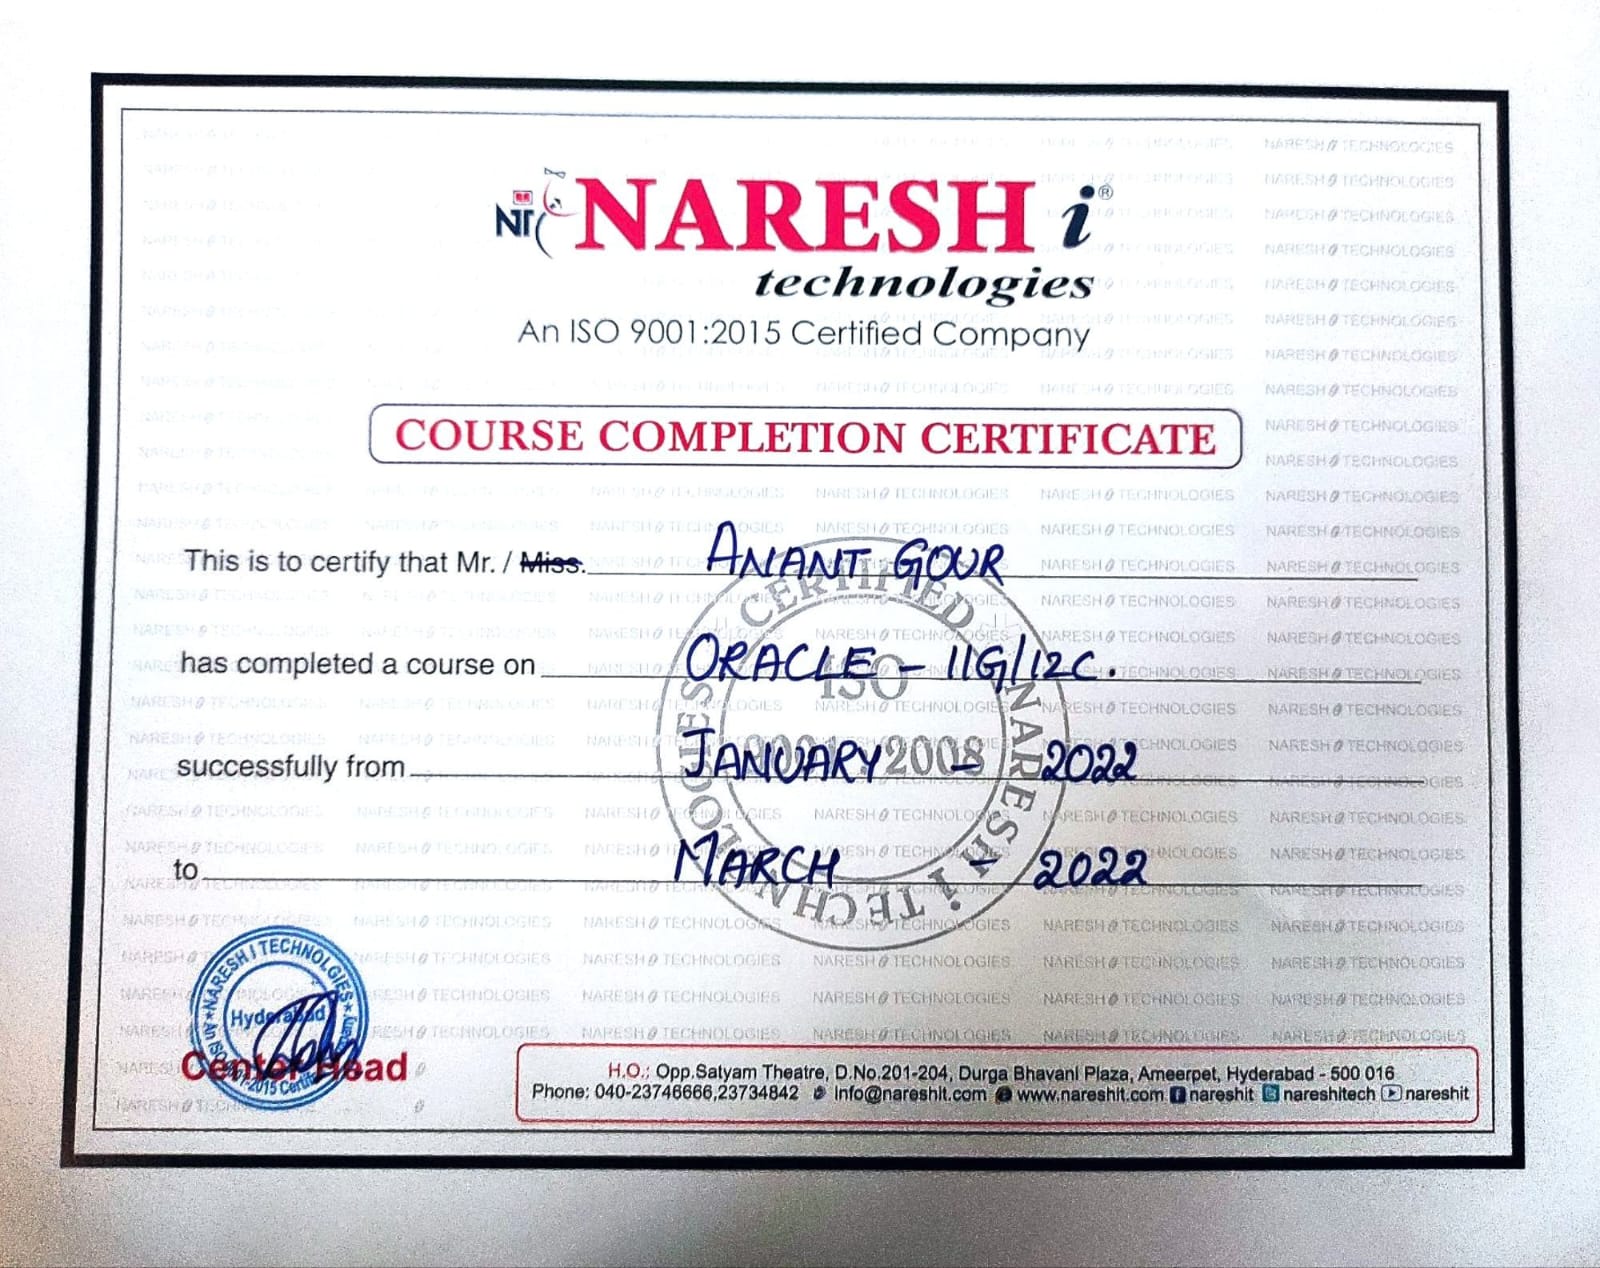 NT NARESH i®
technologies
An ISO 9001:2015 Certified Company
COURSE COMPLETION CERTIFICATE
This is to certify that Mr. / Miss. ANANT GOUR
has completed a course on ORACLE - 11G/12C.
successfully from JANUARY - 2022
to MARCH - 2022
CERTIFIED NARESH i TECHNOLOGIES
ISO
9001 2008
NARESH I TECHNOLOGIES
Hyderabad
Center Head
H.O.: Opp.Satyam Theatre, D.No.201-204, Durga Bhavani Plaza, Ameerpet, Hyderabad - 500 016
Phone: 040-23746666,23734842 info@nareshit.com www.nareshit.com nareshit nareshitech nareshit